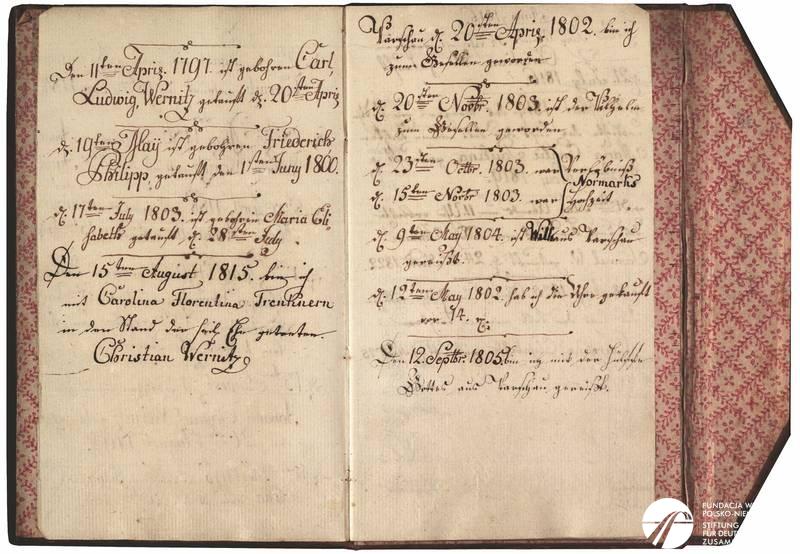 Den 11ten Apriz. 1797. ist gebohren Carl,
Ludwig Wernitz getauft d. 20sten Apriz
d. 19ten May ist gebohren Friederich
Philipp, getauft den 1sten Juny 1800.
d. 17ten July 1803. ist gebohren Maria Eli-
sabeth getauft d. 28sten July.
Den 15ten August 1815. bin ich
mit Carolina Florentina Trenknern
in den Stand der heil. Ehe getreten.
Christian Wernitz
Warschau d. 20sten Apriz. 1802. bin ich
zum Gesellen geworden
d. 20sten Novbr. 1803. ist der Wilhelm
zum Gesellen geworden
d. 23sten Octbr. 1803. war Verlöbniß
Normarks
d. 15ten Novbr 1803. war Hochzeit
d. 9ten May 1804. ist Will aus Warschau
gereißt.
d. 12ten May 1802. hab ich die Uhr gekauft
vor 14. r.
Den 12. Septbr. 1805. bin ich mit der Hülfe
Gottes aus Warschau gereißt.
FUNDACJA W
POLSKO-NIE
STIFTUNG
FÜR DEUT
ZUSAM